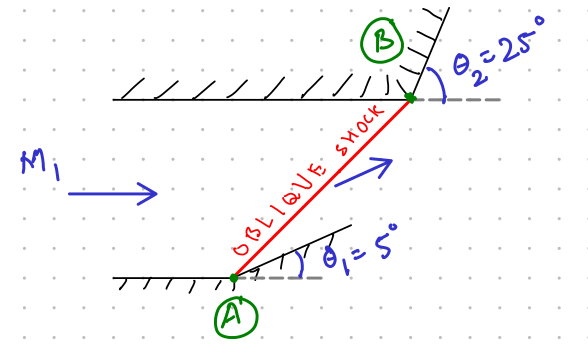 B
θ₂ = 25°
M₁
OBLIQUE SHOCK
θ₁ = 5°
A